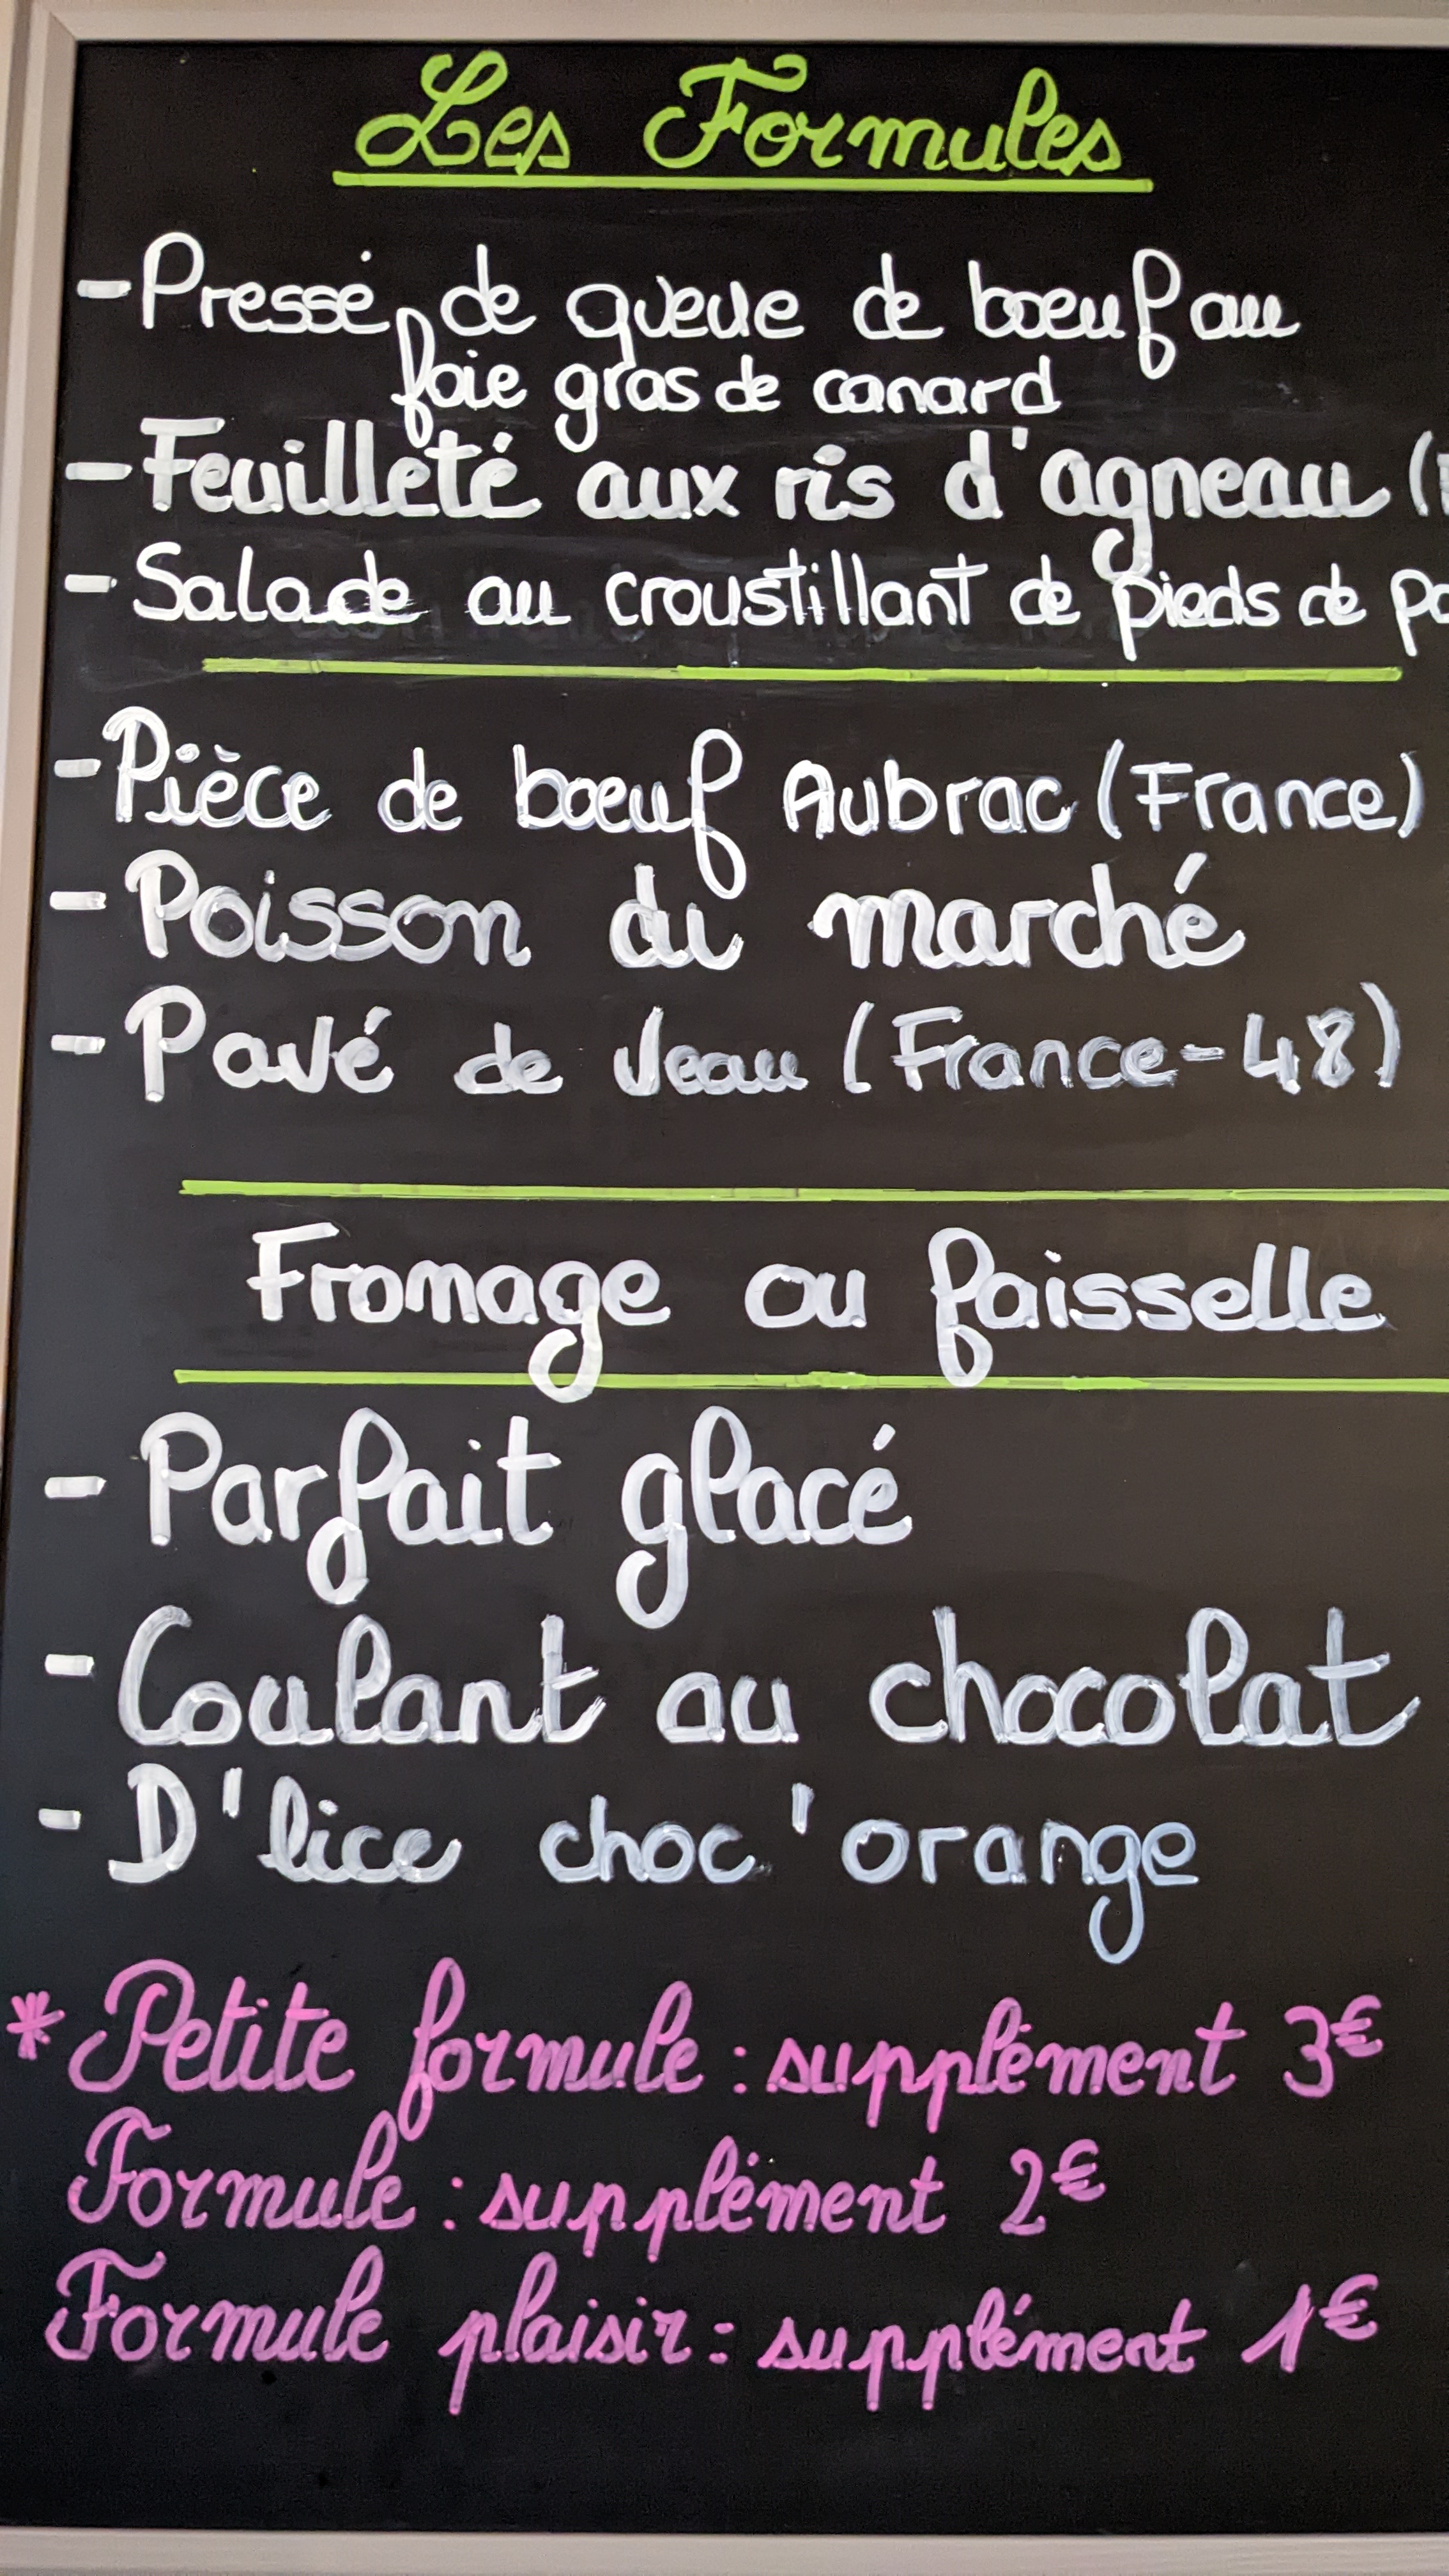 Les Formules
- Pressé de queue de bœuf au
foie gras de canard
- Feuilleté aux ris d'agneau (
- Salade au croustillant de pieds de
- Pièce de bœuf Aubrac (France)
- Poisson du marché
- Pavé de veau (France-48)
Fromage ou faisselle
- Parfait glacé
- Coulant au chocolat
- D'lice choc'orange
* Petite formule : supplément 3€
Formule : supplément 2€
Formule plaisir : supplément 1€